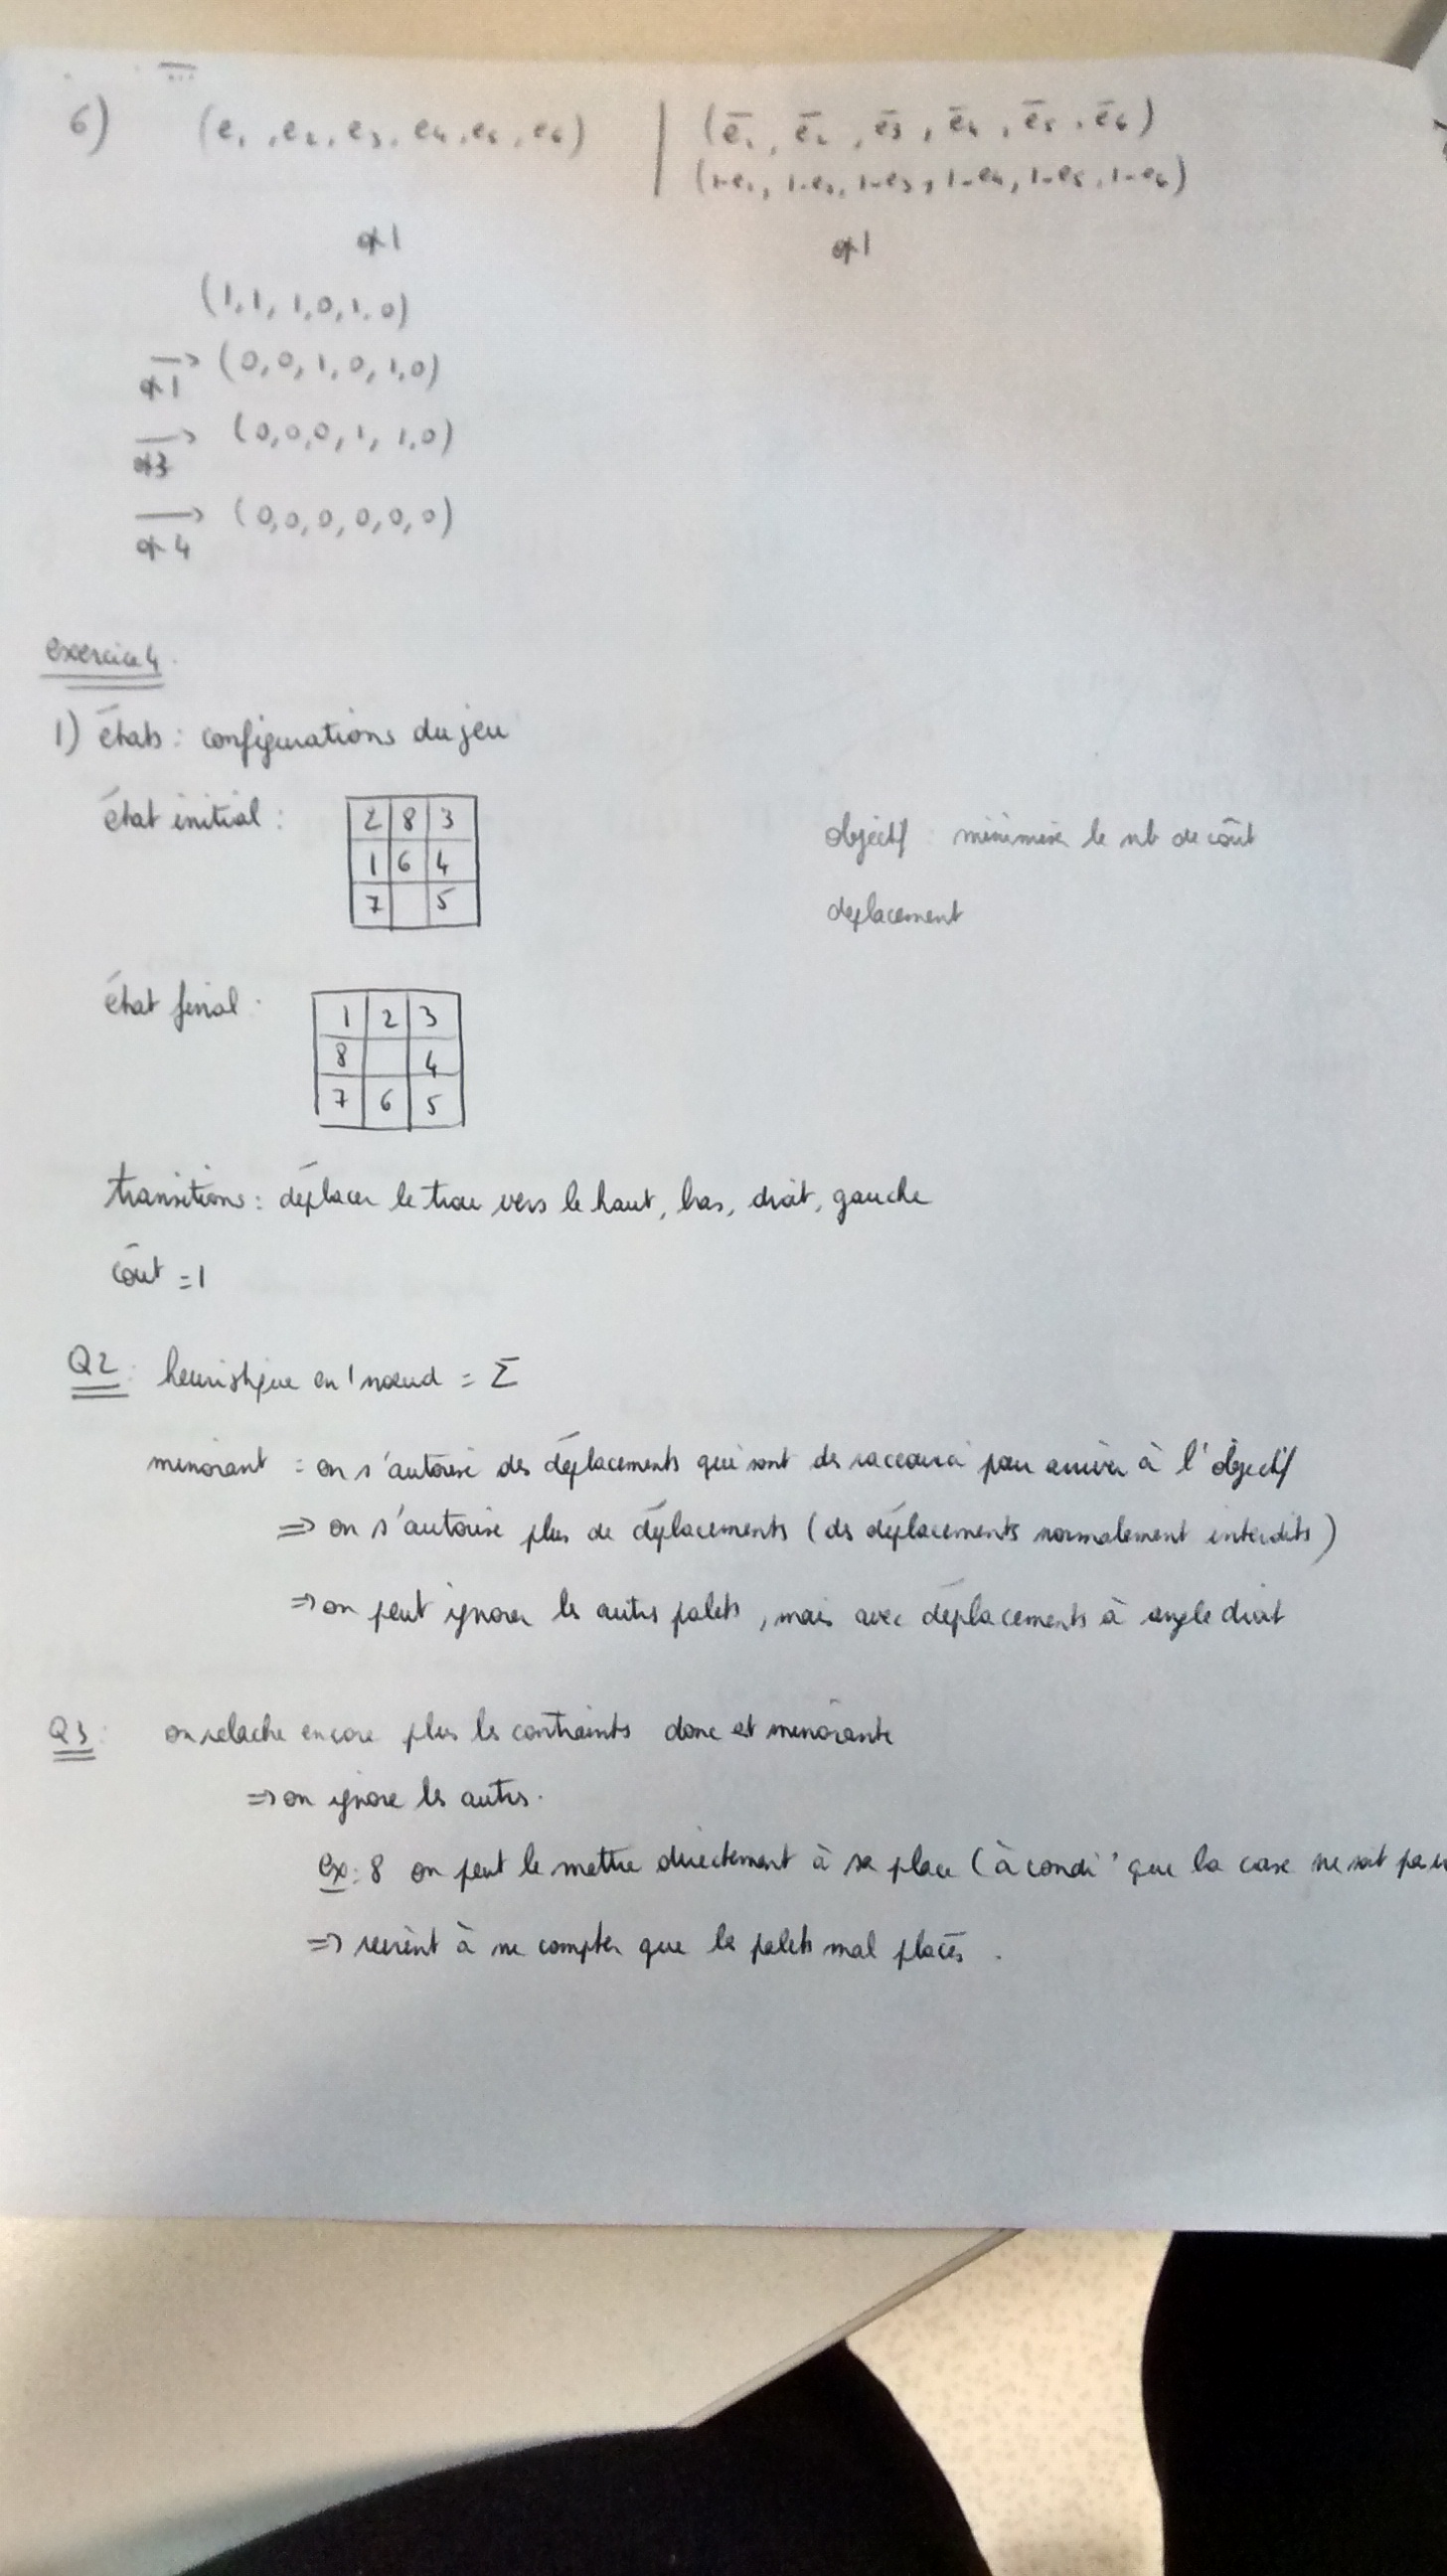 6) (e1, e2, e3, e4, e5, e6) | (ē1, ē2, ē3, ē4, ē5, ē6)
(1-e1, 1-e2, 1-e3, 1-e4, 1-e5, 1-e6)
(1,1,1,0,1,0)
→ (0,0,1,0,1,0)
→ (0,0,0,1,1,0)
→ (0,0,0,0,0,0)
exercice 4
1) états : configurations du jeu
état initial :
2 8 3
1 6 4
7 5
objectif : minimiser le nb de coût
deplacement
état final :
1 2 3
8 4
7 6 5
transitions : déplacer le trou vers le haut, bas, droit, gauche
coût = 1
Q2 : heuristique en 1 nœud = Σ
minorant = on s'autorise des déplacements qui sont des raccourci pour arriver à l'objectif
⇒ on s'autorise plus de déplacements (des déplacements normalement interdits)
⇒ on peut ignorer les autres palets, mais avec déplacements à angle droit
Q3 : on relache encore plus les contraints donc et minorante
⇒ on ignore les autres.
ex : 8 on peut le mettre directement à sa place (à condi° que la case ne soit pas
⇒ revient à ne compter que les palets mal placés.